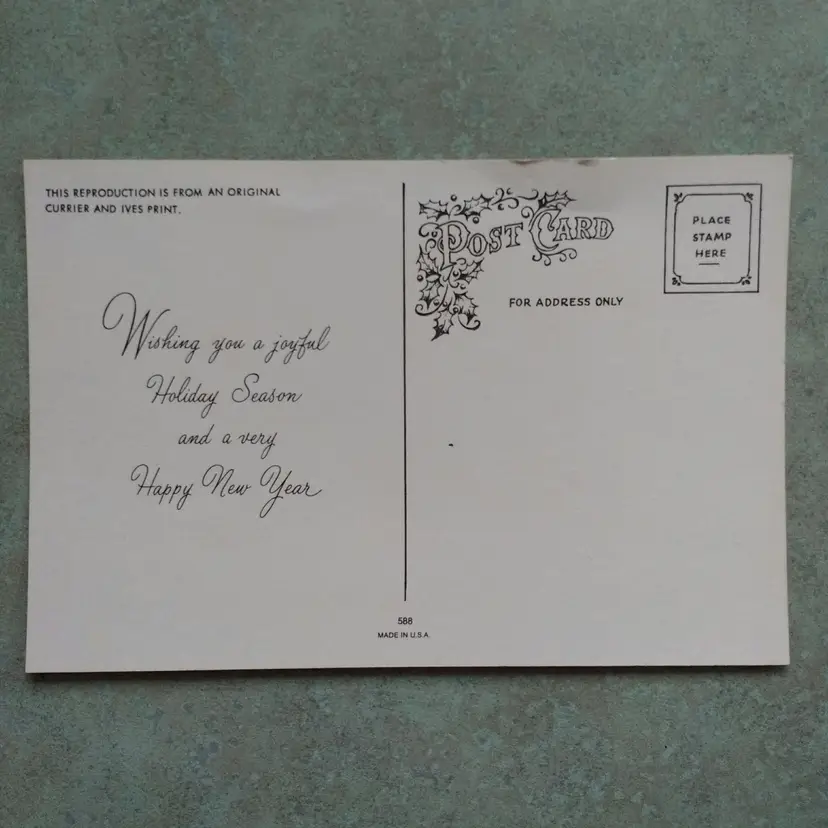 THIS REPRODUCTION IS FROM AN ORIGINAL
CURRIER AND IVES PRINT.
Wishing you a joyful
Holiday Season
and a very
Happy New Year
POST CARD
FOR ADDRESS ONLY
PLACE
STAMP
HERE
588
MADE IN U.S.A.